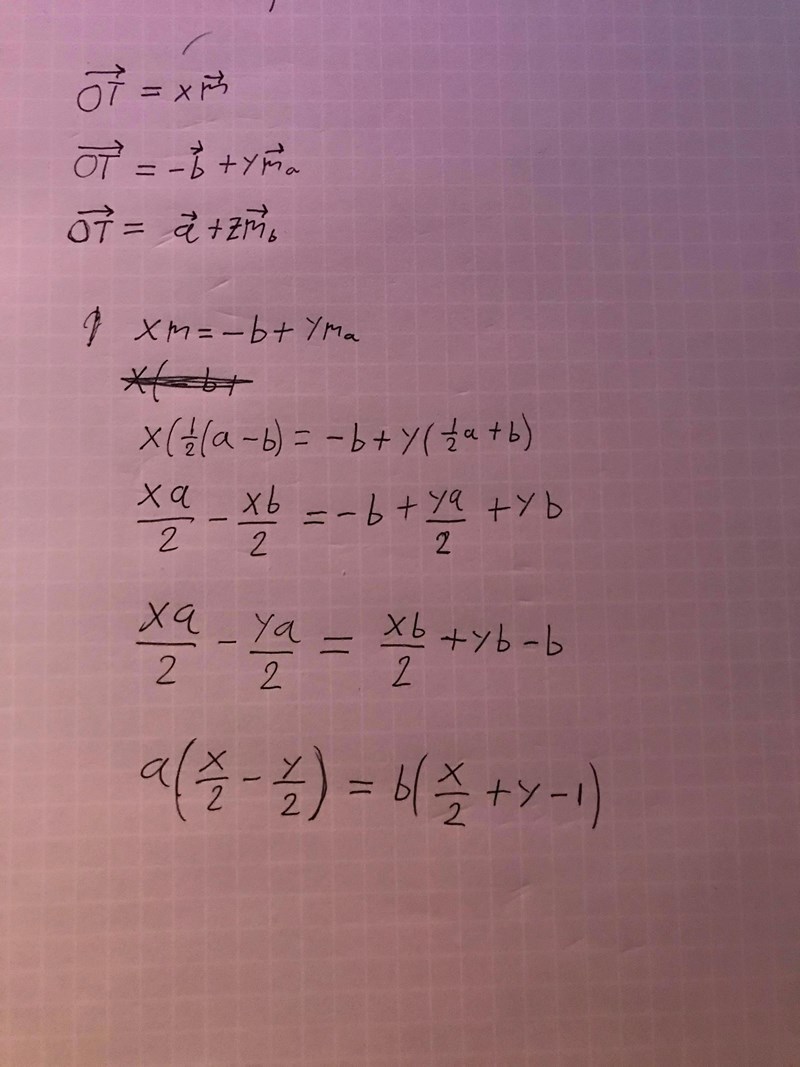 $\overrightarrow{OT} = x\vec{m}$
$\overrightarrow{OT} = -\vec{b} + y\vec{m}_a$
$\overrightarrow{OT} = \vec{a} + z\vec{m}_b$
$xm = -b + ym_a$
$x(\frac{1}{2}(a-b) = -b + y(\frac{1}{2}a + b)$
$\frac{xa}{2} - \frac{xb}{2} = -b + \frac{ya}{2} + yb$
$\frac{xa}{2} - \frac{ya}{2} = \frac{xb}{2} + yb - b$
$a\left(\frac{x}{2} - \frac{y}{2}\right) = b\left(\frac{x}{2} + y - 1\right)$